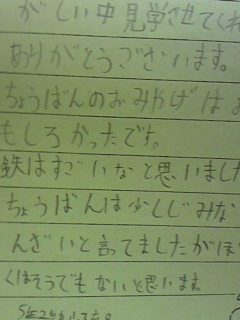 がしい中見学させてくれ
ありがとうございます。
ちょうばんのおみやげはお
もしろかったです。
鉄はすごいなと思いました
ちょうばんは少ししじみな
んざいと言ってましたがぼ
くはそうでもないと思います。